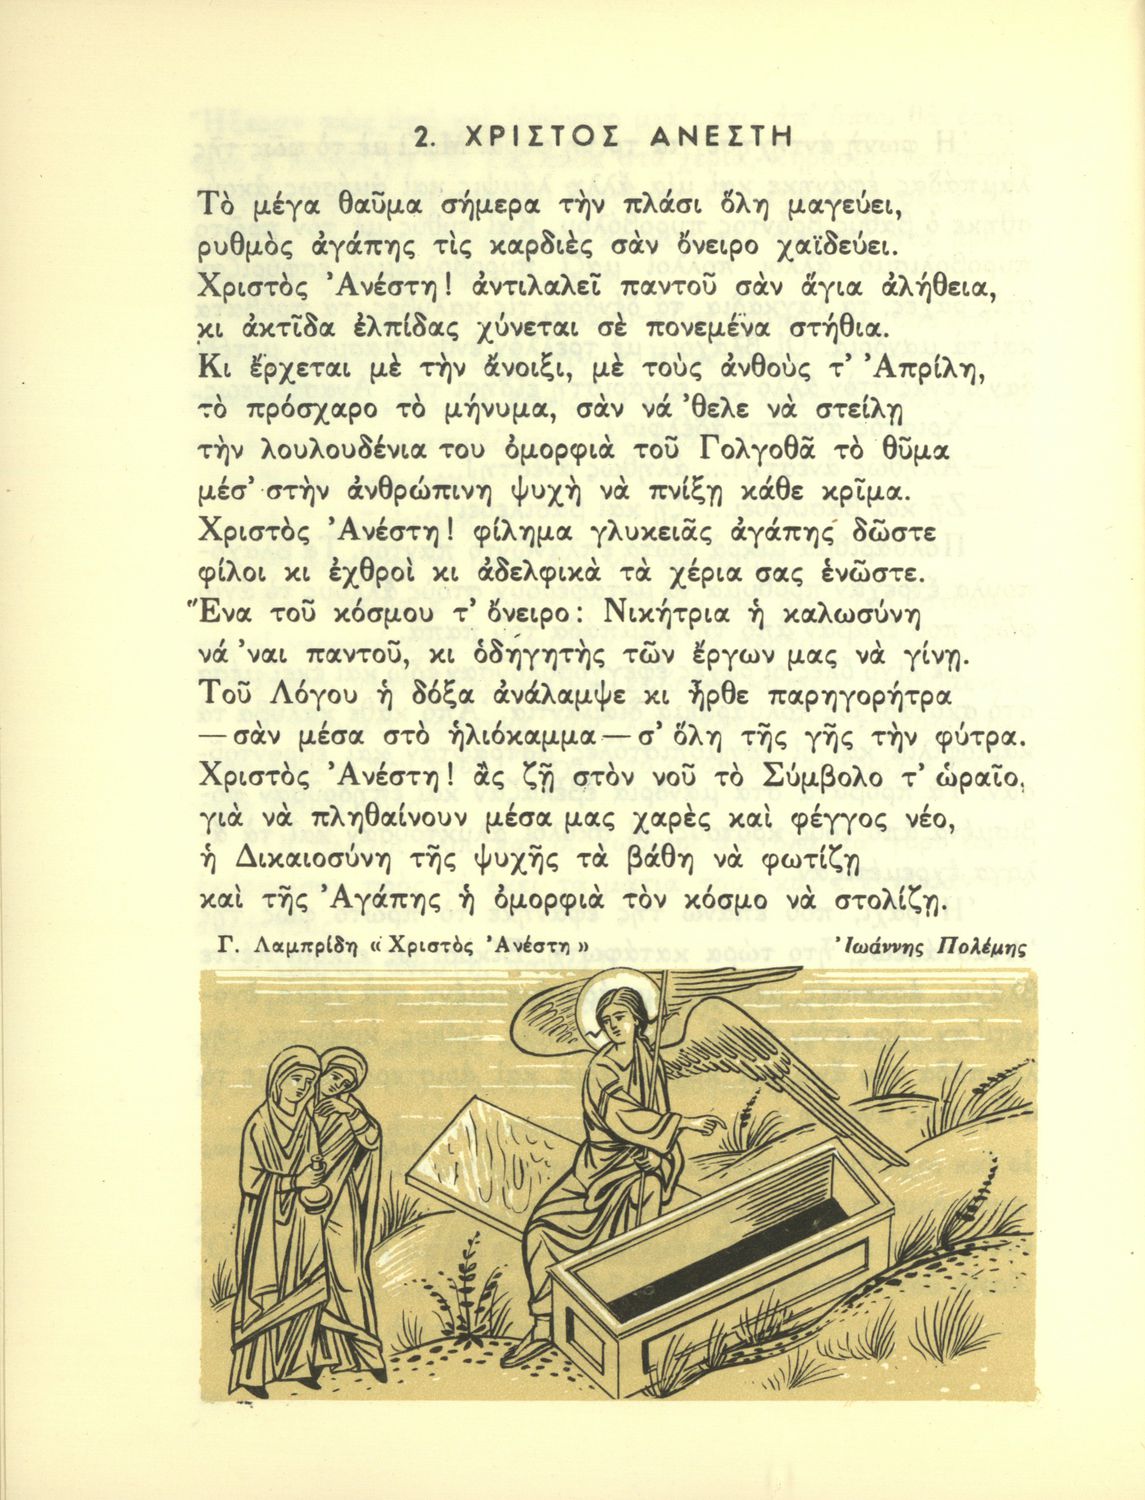 2. ΧΡΙΣΤΟΣ ΑΝΕΣΤΗ
Τὸ μέγα θαῦμα σήμερα τὴν πλάσι ὅλη μαγεύει,
ρυθμὸς ἀγάπης τὶς καρδιὲς σὰν ὄνειρο χαϊδεύει.
Χριστὸς Ἀνέστη! ἀντιλαλεῖ παντοῦ σὰν ἅγια ἀλήθεια,
κι ἀκτῖδα ἐλπίδας χύνεται σὲ πονεμένα στήθια.
Κι ἔρχεται μὲ τὴν ἄνοιξι, μὲ τοὺς ἀνθοὺς τ' Ἀπρίλη,
τὸ πρόσχαρο τὸ μήνυμα, σὰν νά 'θελε νὰ στείλῃ
τὴν λουλουδένια του ὀμορφιὰ τοῦ Γολγοθᾶ τὸ θῦμα
μέσ' στὴν ἀνθρώπινη ψυχὴ νὰ πνίξῃ κάθε κρῖμα.
Χριστὸς Ἀνέστη! φίλημα γλυκειᾶς ἀγάπης δῶστε
φίλοι κι ἐχθροὶ κι ἀδελφικὰ τὰ χέρια σας ἑνῶστε.
Ἕνα τοῦ κόσμου τ' ὄνειρο: Νικήτρια ἡ καλωσύνη
νά 'ναι παντοῦ, κι ὁδηγητὴς τῶν ἔργων μας νὰ γίνῃ.
Τοῦ Λόγου ἡ δόξα ἀνάλαμψε κι ἦρθε παρηγορήτρα
—σὰν μέσα στὸ ἡλιόκαμμα— σ' ὅλη τῆς γῆς τὴν φύτρα.
Χριστὸς Ἀνέστη! ἂς ζῇ στὸν νοῦ τὸ Σύμβολο τ' ὡραῖο,
γιὰ νὰ πληθαίνουν μέσα μας χαρὲς καὶ φέγγος νέο,
ἡ Δικαιοσύνη τῆς ψυχῆς τὰ βάθη νὰ φωτίζῃ
καὶ τῆς Ἀγάπης ἡ ὀμορφιὰ τὸν κόσμο νὰ στολίζῃ.
Γ. Λαμπρίδη «Χριστὸς Ἀνέστη» Ἰωάννης Πολέμης